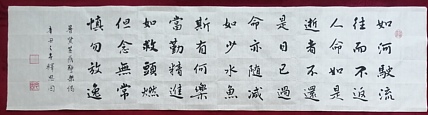 如河駛流
往而不返
人命如是
逝者不還
是日已過
命亦隨減
如少水魚
斯有何樂
當勤精進
如救頭燃
但念無常
慎勿放逸
普賢菩薩警眾偈